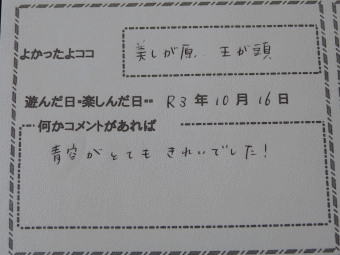 よかったよココ 美しが原 王が頭
遊んだ日・楽しんだ日・・ R3年10月16日
何かコメントがあれば
青空がとてもきれいでした!